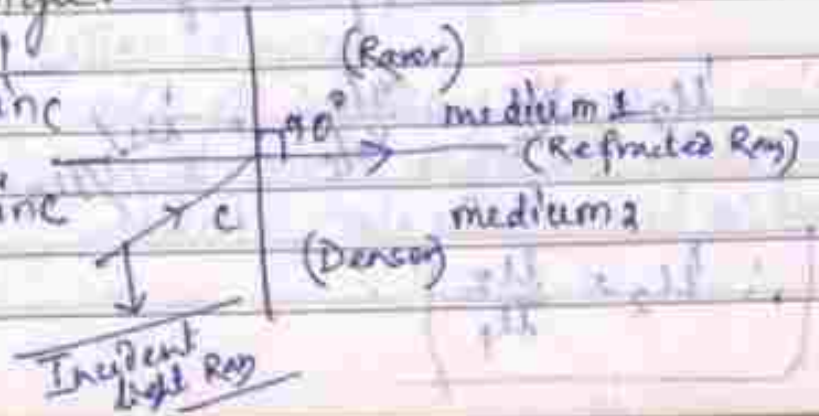 (Rarer)
inc
90°
medium 1
(Refracted Ray)
inc
c
medium 2
(Denser)
Incident
Light Ray